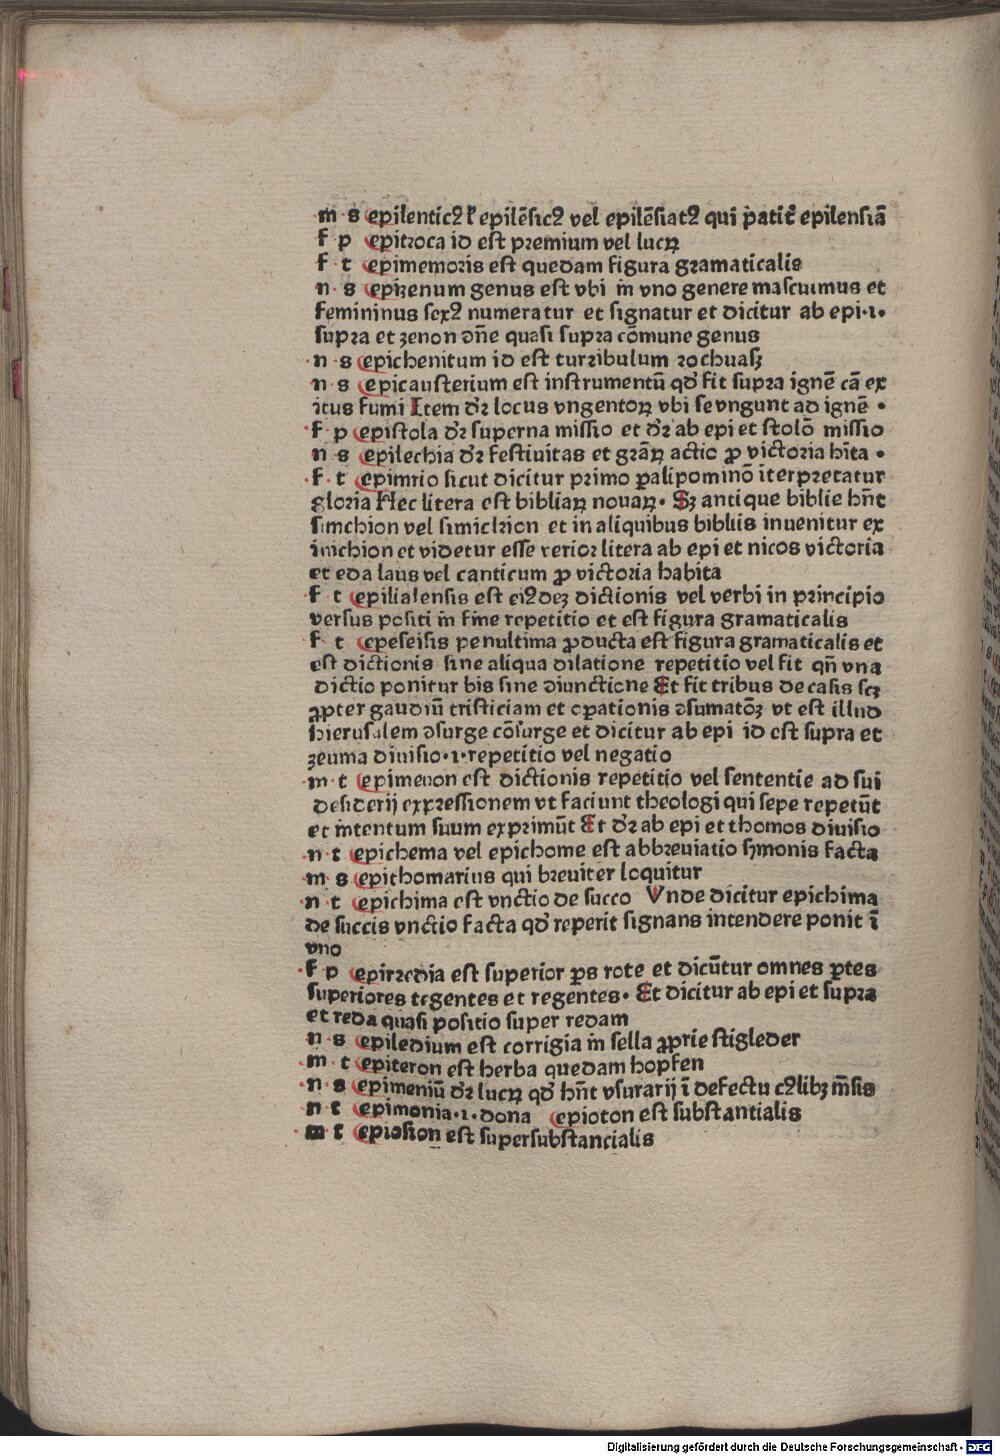 m s epilenticꝰ ł epilēsicꝰ vel epilēsiatꝰ qui patit᷑ epilensiā
f p epitroca id est premium vel lucꝝ
f t epimemoris est quedam figura gramaticalis
n s epizenum genus est vbi in vno genere masculimus et
femininus sexꝰ numeratur et signatur et dicitur ab epi·i·
supra et zenon ꝯñe quasi supra cōmune genus
n s epichenitum id est turribulum rochuasz
n s epicausterium est instrumentū qd' fit supra ignē cā ex
itus fumi Item d'r locus vngentoꝝ vbi se vngunt ad ignē ·
f p epistola d'r superna missio et d'r ab epi et stolō missio
n s epilechia d'r festiuitas et grāꝝ actio ꝓ victoria hīta ·
f t epimrio sicut dicitur primo ꝑalipominō īterpretatur
gloria Hec litera est bibliaꝝ nouaꝝ· Sꝫ antique biblie hñt
simchion vel simichion et in aliquibus bibliis inuenitur ex
inichion et videtur esse verior litera ab epi et nicos victoria
et eda laus vel canticum ꝓ victoria habita
f t epilialensis est eiꝰdeꝫ dictionis vel verbi in principio
versus positi in fine repetitio et est figura gramaticalis
f t epeseisis penultima ꝓducta est figura gramaticalis et
est dictionis sine aliqua dilatione repetitio vel fit qñ vna
dictio ponitur bis sine diunctione Et fit tribus de casis scꝫ
ꝓpter gaudiū tristiciam et oꝑationis ꝯsumatōꝫ vt est illud
hierusalem ꝯsurge cōsurge et dicitur ab epi id est supra et
zeuma diuisio·i·repetitio vel negatio
m t epimenon est dictionis repetitio vel sententie ad sui
desiderij expressionem vt faciunt theologi qui sepe repetūt
et intentum suum exprimūt Et d'r ab epi et thomos diuisio
n t epichema vel epichome est abbreuiatio sermonis facta
m s epithomarius qui breuiter loquitur
n t epichima est vnctio de succo Vnde dicitur epichima
de succis vnctio facta qd' reperit signans intendere ponit ī
vno
f p epirredia est superior ꝑs rote et dicūtur omnes ꝑtes
superiores tegentes et regentes· Et dicitur ab epi et supra
et reda quasi positio super redam
n s epiledium est corrigia in sella ꝓprie stigleder
m t epiteron est herba quedam hopfen
n s epimeniū d'r lucꝝ qd' hñt vsurarij ī defectu cꝰlibꝫ mēsis
n t epimonia·i·dona epioton est substantialis
m t epiosion est supersubstancialis
Digitalisierung gefördert durch die Deutsche Forschungsgemeinschaft - DFG